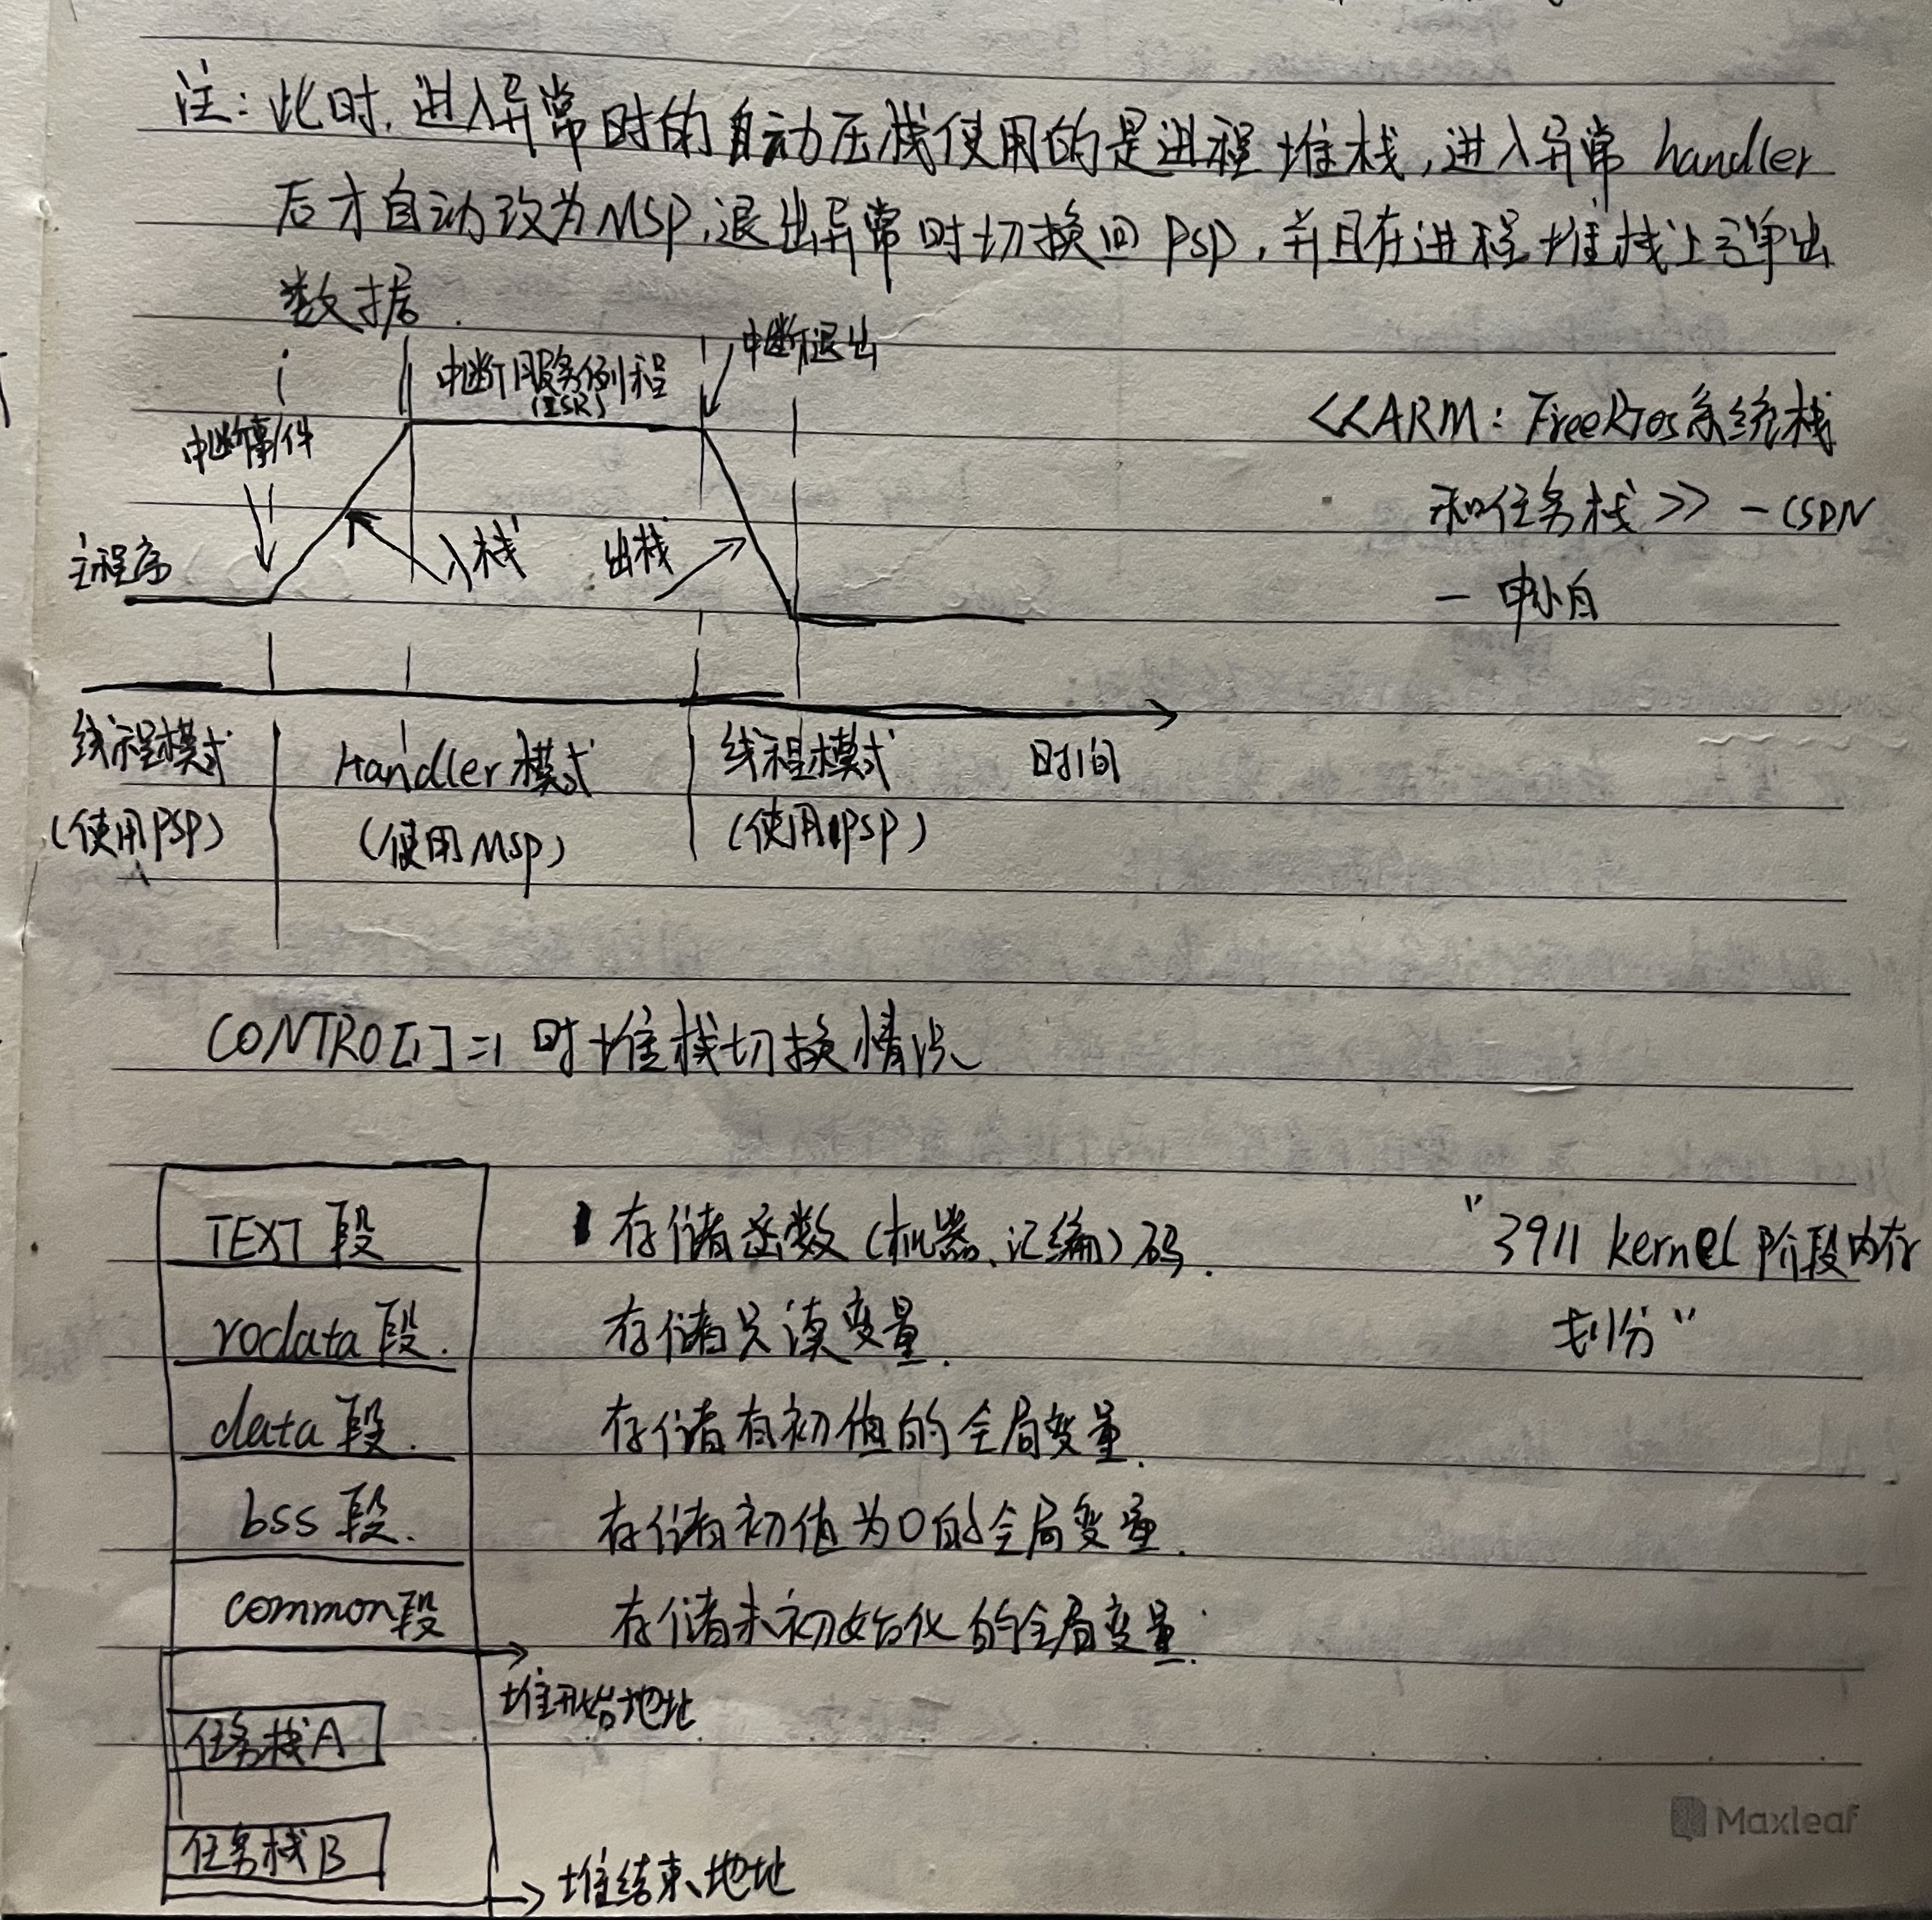 注：此时，进入异常时的自动压栈使用的是进程堆栈，进入异常 handler
后才自动改为MSP，退出异常时切换回 PSP，并且在进程堆栈上弹出
数据.
中断退出
中断服务例程
(ISR)
中断事件
主程序
入栈
出栈
<<ARM：FreeRTos系统栈
和任务栈>> -CSDN
- 申小白
线程模式
(使用PSP)
Handler模式
(使用MSP)
线程模式
(使用PSP)
时间
CONTRO[1]=1 时堆栈切换情况
TEXT 段
存储函数(机器、汇编)码.
rodata 段.
存储只读变量.
data 段.
存储有初值的全局变量.
bss 段.
存储初值为0的全局变量.
common段
存储未初始化的全局变量.
"3911 kernel 阶段内存
划分"
堆开始地址
任务栈A
任务栈B
堆结束地址
Maxleaf